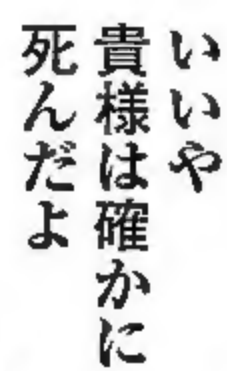 いいや
貴様は確かに
死んだよ